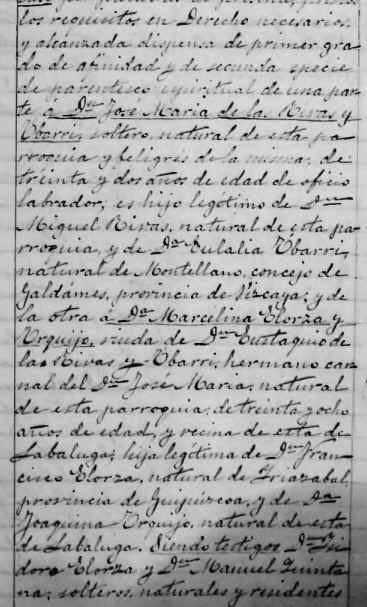 los requisitos en Derecho necesarios,
y alcanzada dispensa de primer gra
do de afinidad y de segunda especie
de parentesco espiritual de una par
te á Dn José Maria de las Rivas y
Ybarri, soltero, natural de esta pa
rroquia y feligres de la misma, de
treinta y dos años de edad de oficio
labrador; es hijo legitimo de Dn
Miguel Rivas, natural de esta pa
rroquia, y de Da Eulalia Ybarri,
natural de Montellano, concejo de
Galdámes, provincia de Vizcaya; y de
la otra á Da Marcelina Elorza y
Urquijo, viuda de Dn Eustaquio de
las Rivas y Ybarri, hermano car
nal del Dn José Maria; natural
de esta parroquia, de treinta y ocho
años de edad, y vecina de esta de
Labaluga; hija legitima de Dn Fran
cisco Elorza, natural de
provincia de Guipúzcoa, y de Da
Joaquina Urquijo, natural de esta
de Labaluga. Siendo testigos Dn Isi
doro Elorza y Dn Manuel Quinta
na; solteros, naturales y residentes